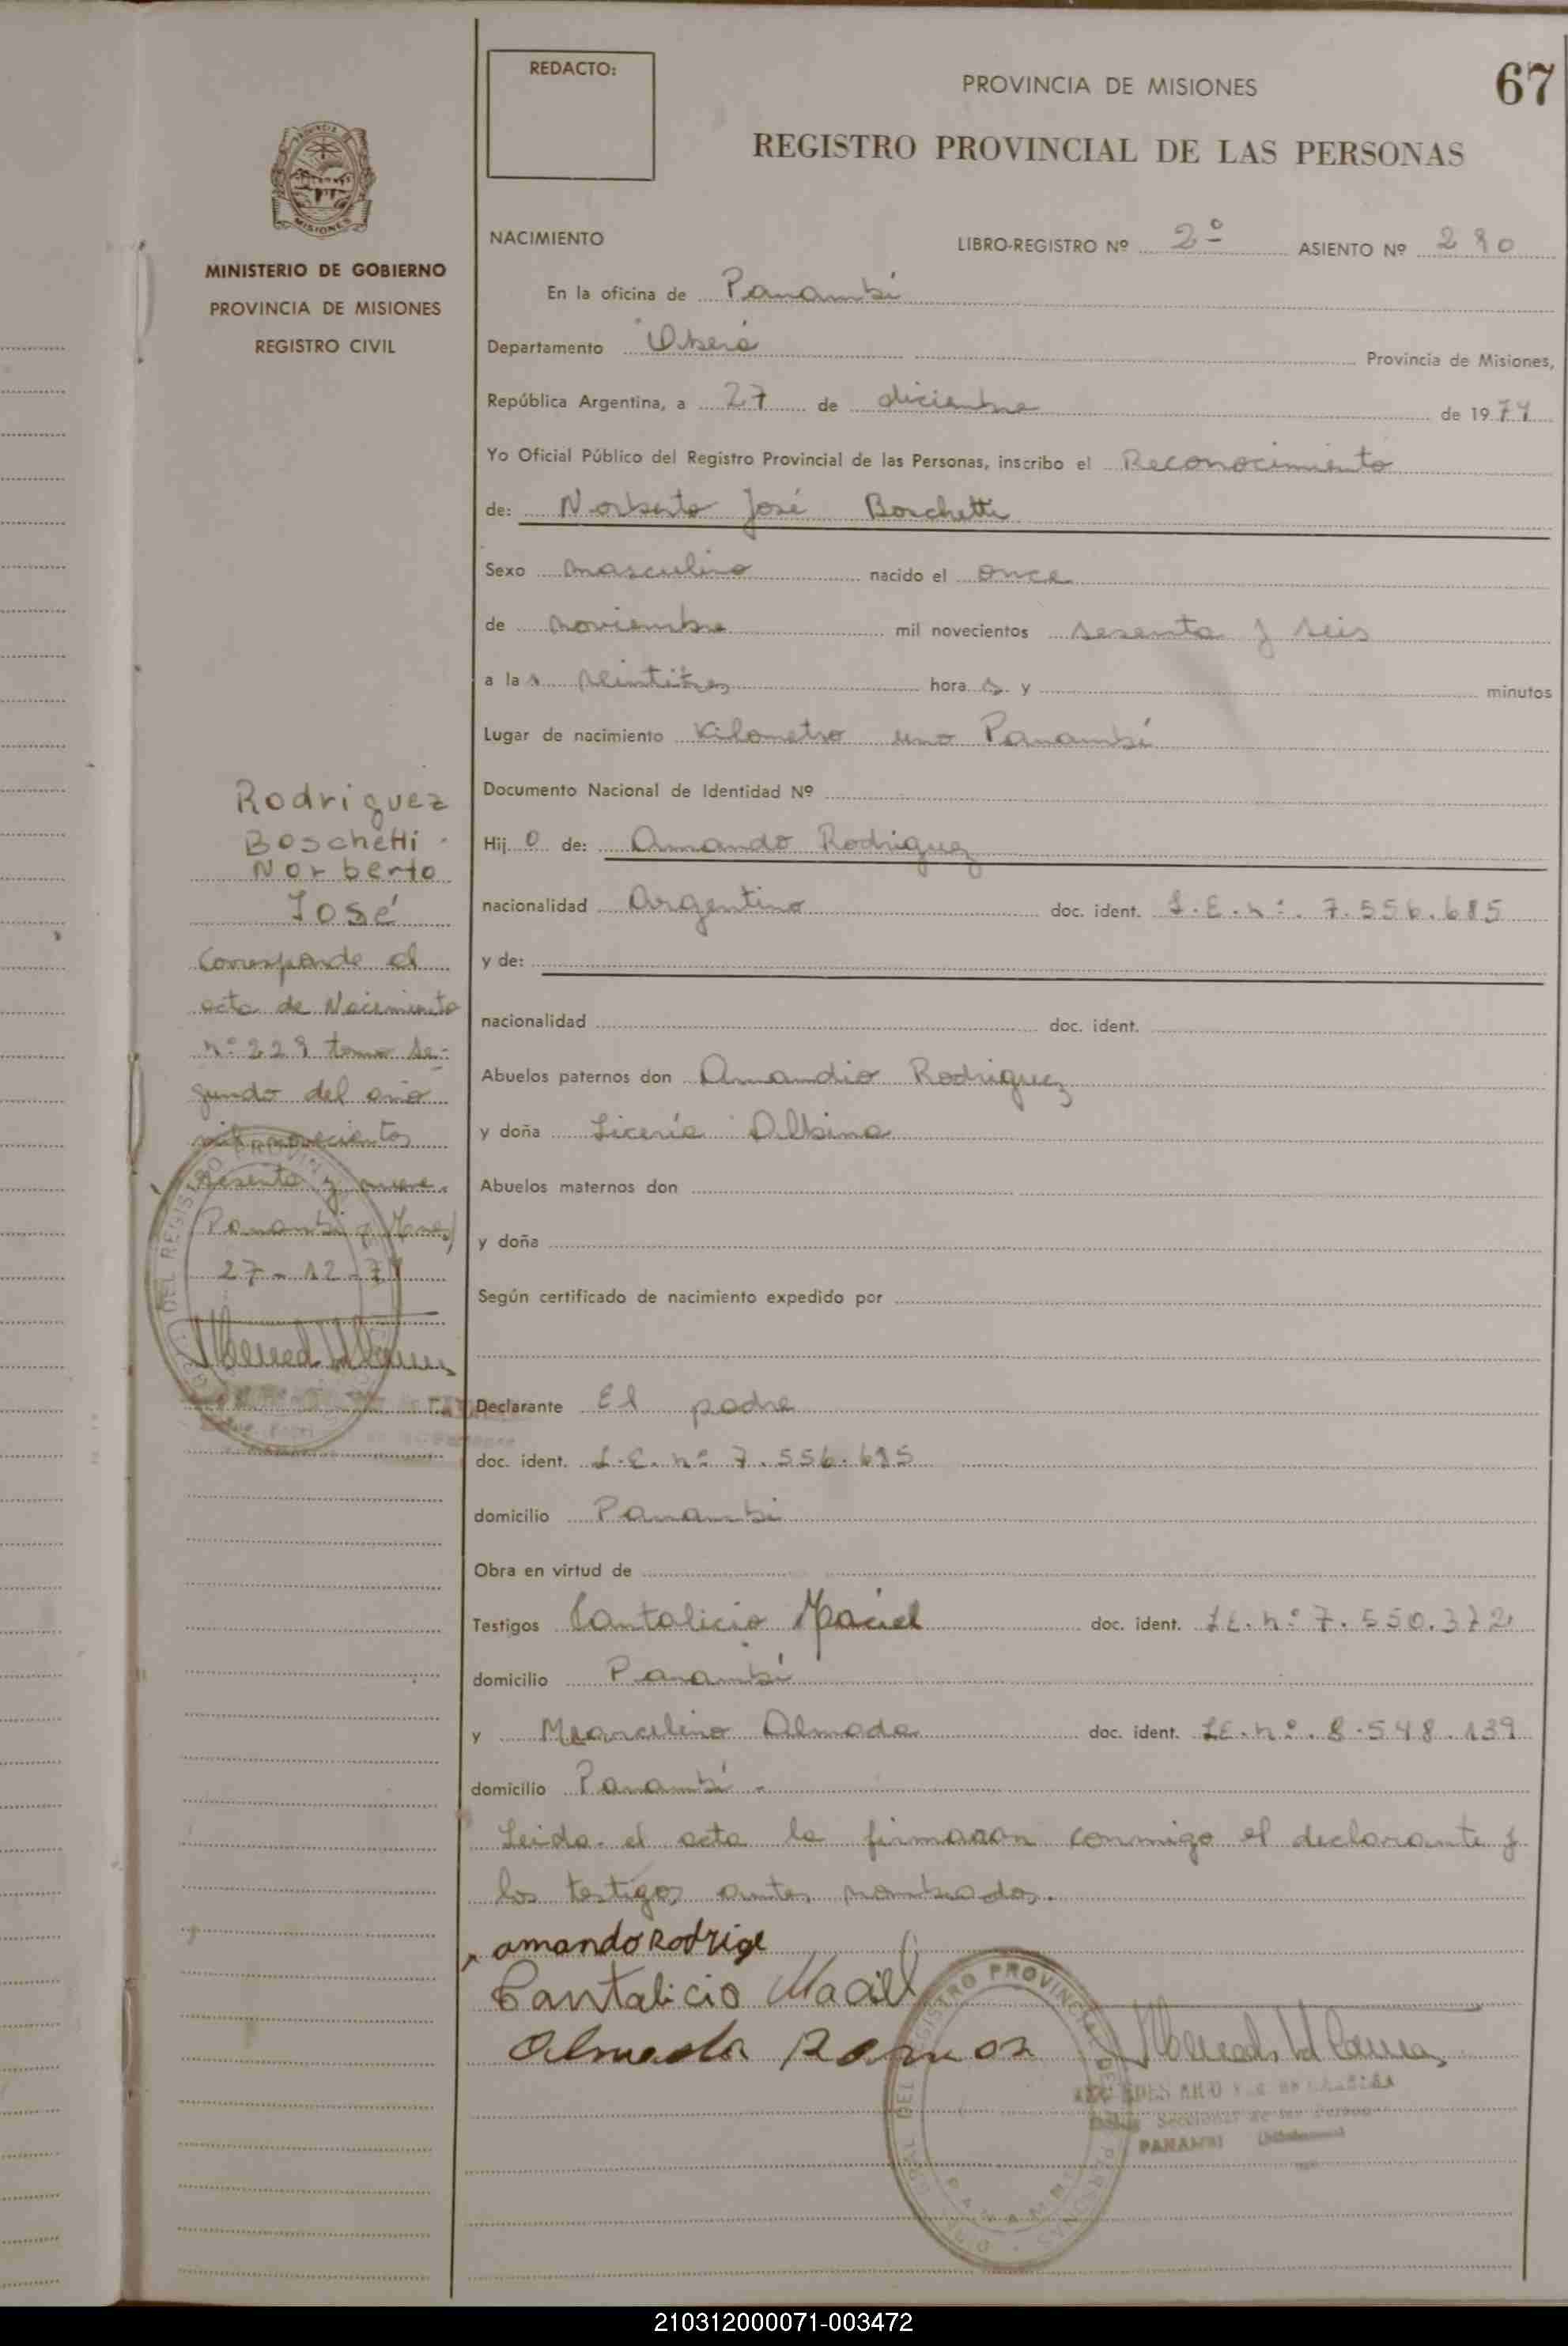 REDACTO:
PROVINCIA DE MISIONES
67
REGISTRO PROVINCIAL DE LAS PERSONAS
MISIONES
MINISTERIO DE GOBIERNO
PROVINCIA DE MISIONES
REGISTRO CIVIL
NACIMIENTO LIBRO-REGISTRO Nº 2º ASIENTO Nº 290
En la oficina de Panambí
Departamento Oberá Provincia de Misiones,
República Argentina, a 27 de diciembre de 1974
Yo Oficial Público del Registro Provincial de las Personas, inscribo el Reconocimiento
de: Norberto José Boschetti
Sexo masculino nacido el once
de noviembre mil novecientos sesenta y seis
a las veintitres horas y minutos
Lugar de nacimiento Kilometro uno Panambí
Documento Nacional de Identidad Nº
Hijo de: Amando Rodriguez
nacionalidad Argentino doc. ident. L.E. nº. 7.556.685
y de:
nacionalidad doc. ident.
Abuelos paternos don Amandio Rodriguez
y doña Liceria Albina
Abuelos maternos don
y doña
Según certificado de nacimiento expedido por
Declarante El padre
doc. ident. L.E. nº 7.556.685
domicilio Panambi
Obra en virtud de
Testigos Cantalicio Maciel doc. ident. L.E. nº 7.550.372
domicilio Panambí
y Marcelino Almada doc. ident. L.E. nº. 8.548.139
domicilio Panambí -
Leida el acta la firmaron conmigo el declarante y
los testigos antes nombrados.
amando Rodrige
Cantalicio Maciel
Almada Ramos
PANAMBI
Rodriguez
Boschetti
Norberto
José
Corresponde al
acta de Nacimiento
nº 229 tomo se-
gundo del año
mil novecientos
sesenta y nueve.
Panambi
27-12-74
210312000071-003472